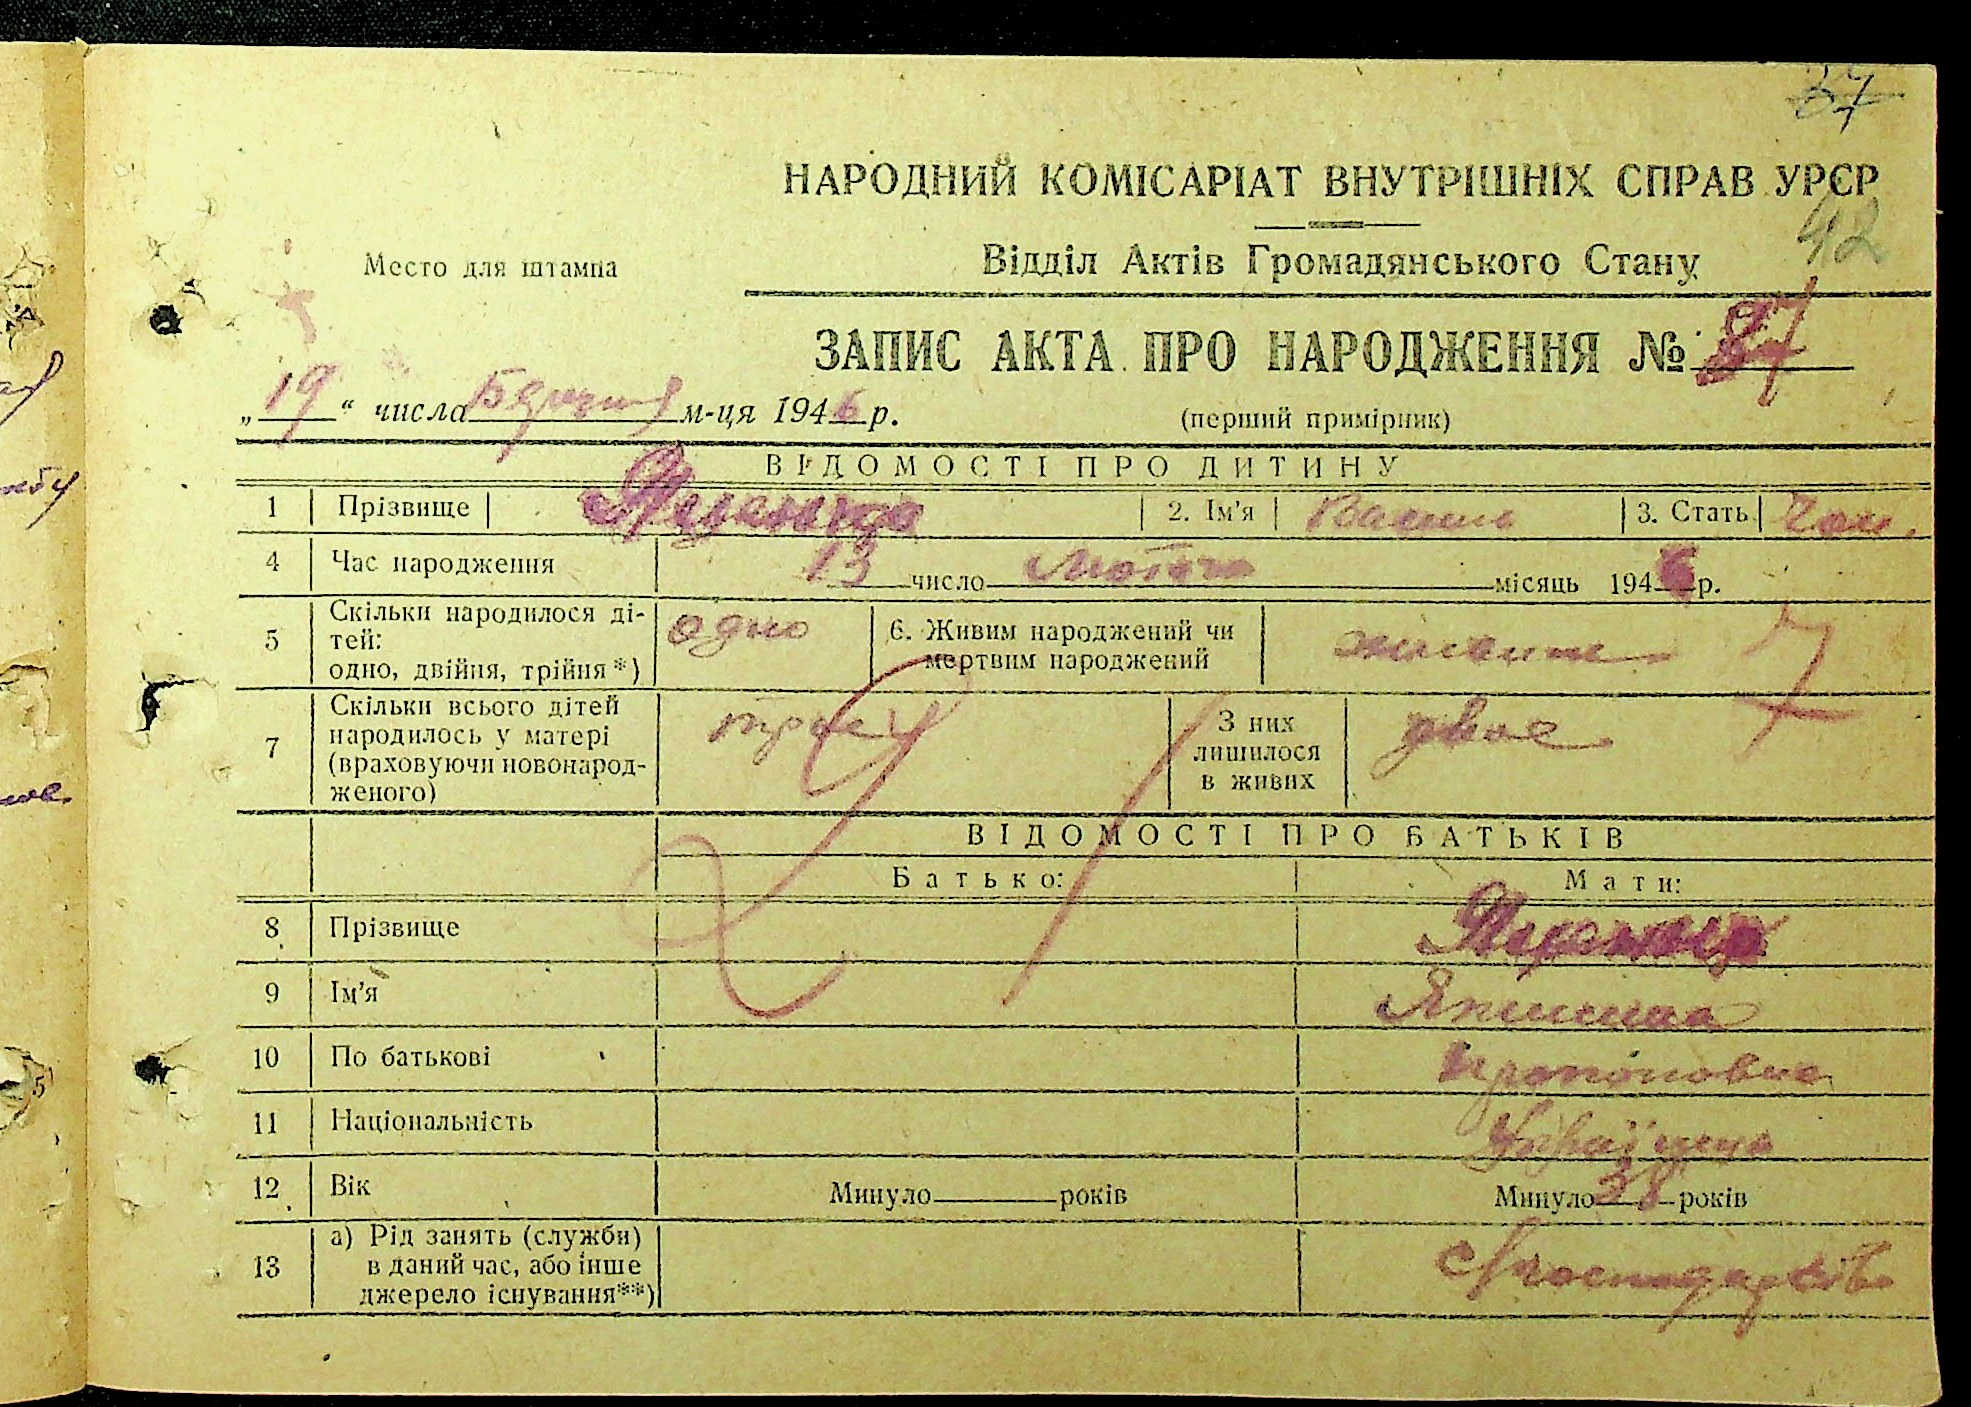 37
НАРОДНИЙ КОМІСАРІАТ ВНУТРІШНІХ СПРАВ УРСР
42
Место для штампа
Відділ Актів Громадянського Стану
ЗАПИС АКТА ПРО НАРОДЖЕННЯ № 37
„19“ числа Березня м-ця 1946 р.
(перший примірник)
ВІДОМОСТІ ПРО ДИТИНУ
1 Прізвище 2. Ім'я Василь 3. Стать Чол.
4 Час народження 13 число Лютого місяць 1946 р.
5 Скільки народилося ді-
тей:
одно, двійня, трійня *) одно 6. Живим народжений чи
мертвим народжений живим
7 Скільки всього дітей
народилось у матері
(враховуючи новонарод-
женого) троє З них
лишилося
в живих двоє
7
ВІДОМОСТІ ПРО БАТЬКІВ
Батько: Мати:
8 Прізвище
9 Ім'я
10 По батькові Прокоповна
11 Національність Українка
12 Вік Минуло років Минуло 38 років
13 а) Рід занять (служби)
в даний час, або інше
джерело існування**)